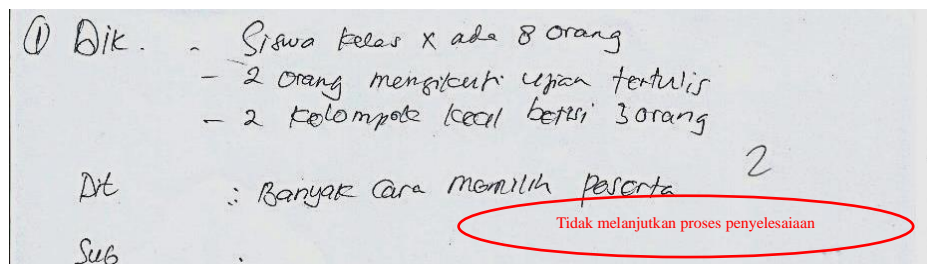 ① Dik. - Siswa kelas X ada 8 orang
- 2 orang mengikuti ujian tertulis
- 2 kelompok kecil berisi 3 orang
2
Dit : Banyak cara memilih peserta
Tidak melanjutkan proses penyelesaiaan
: